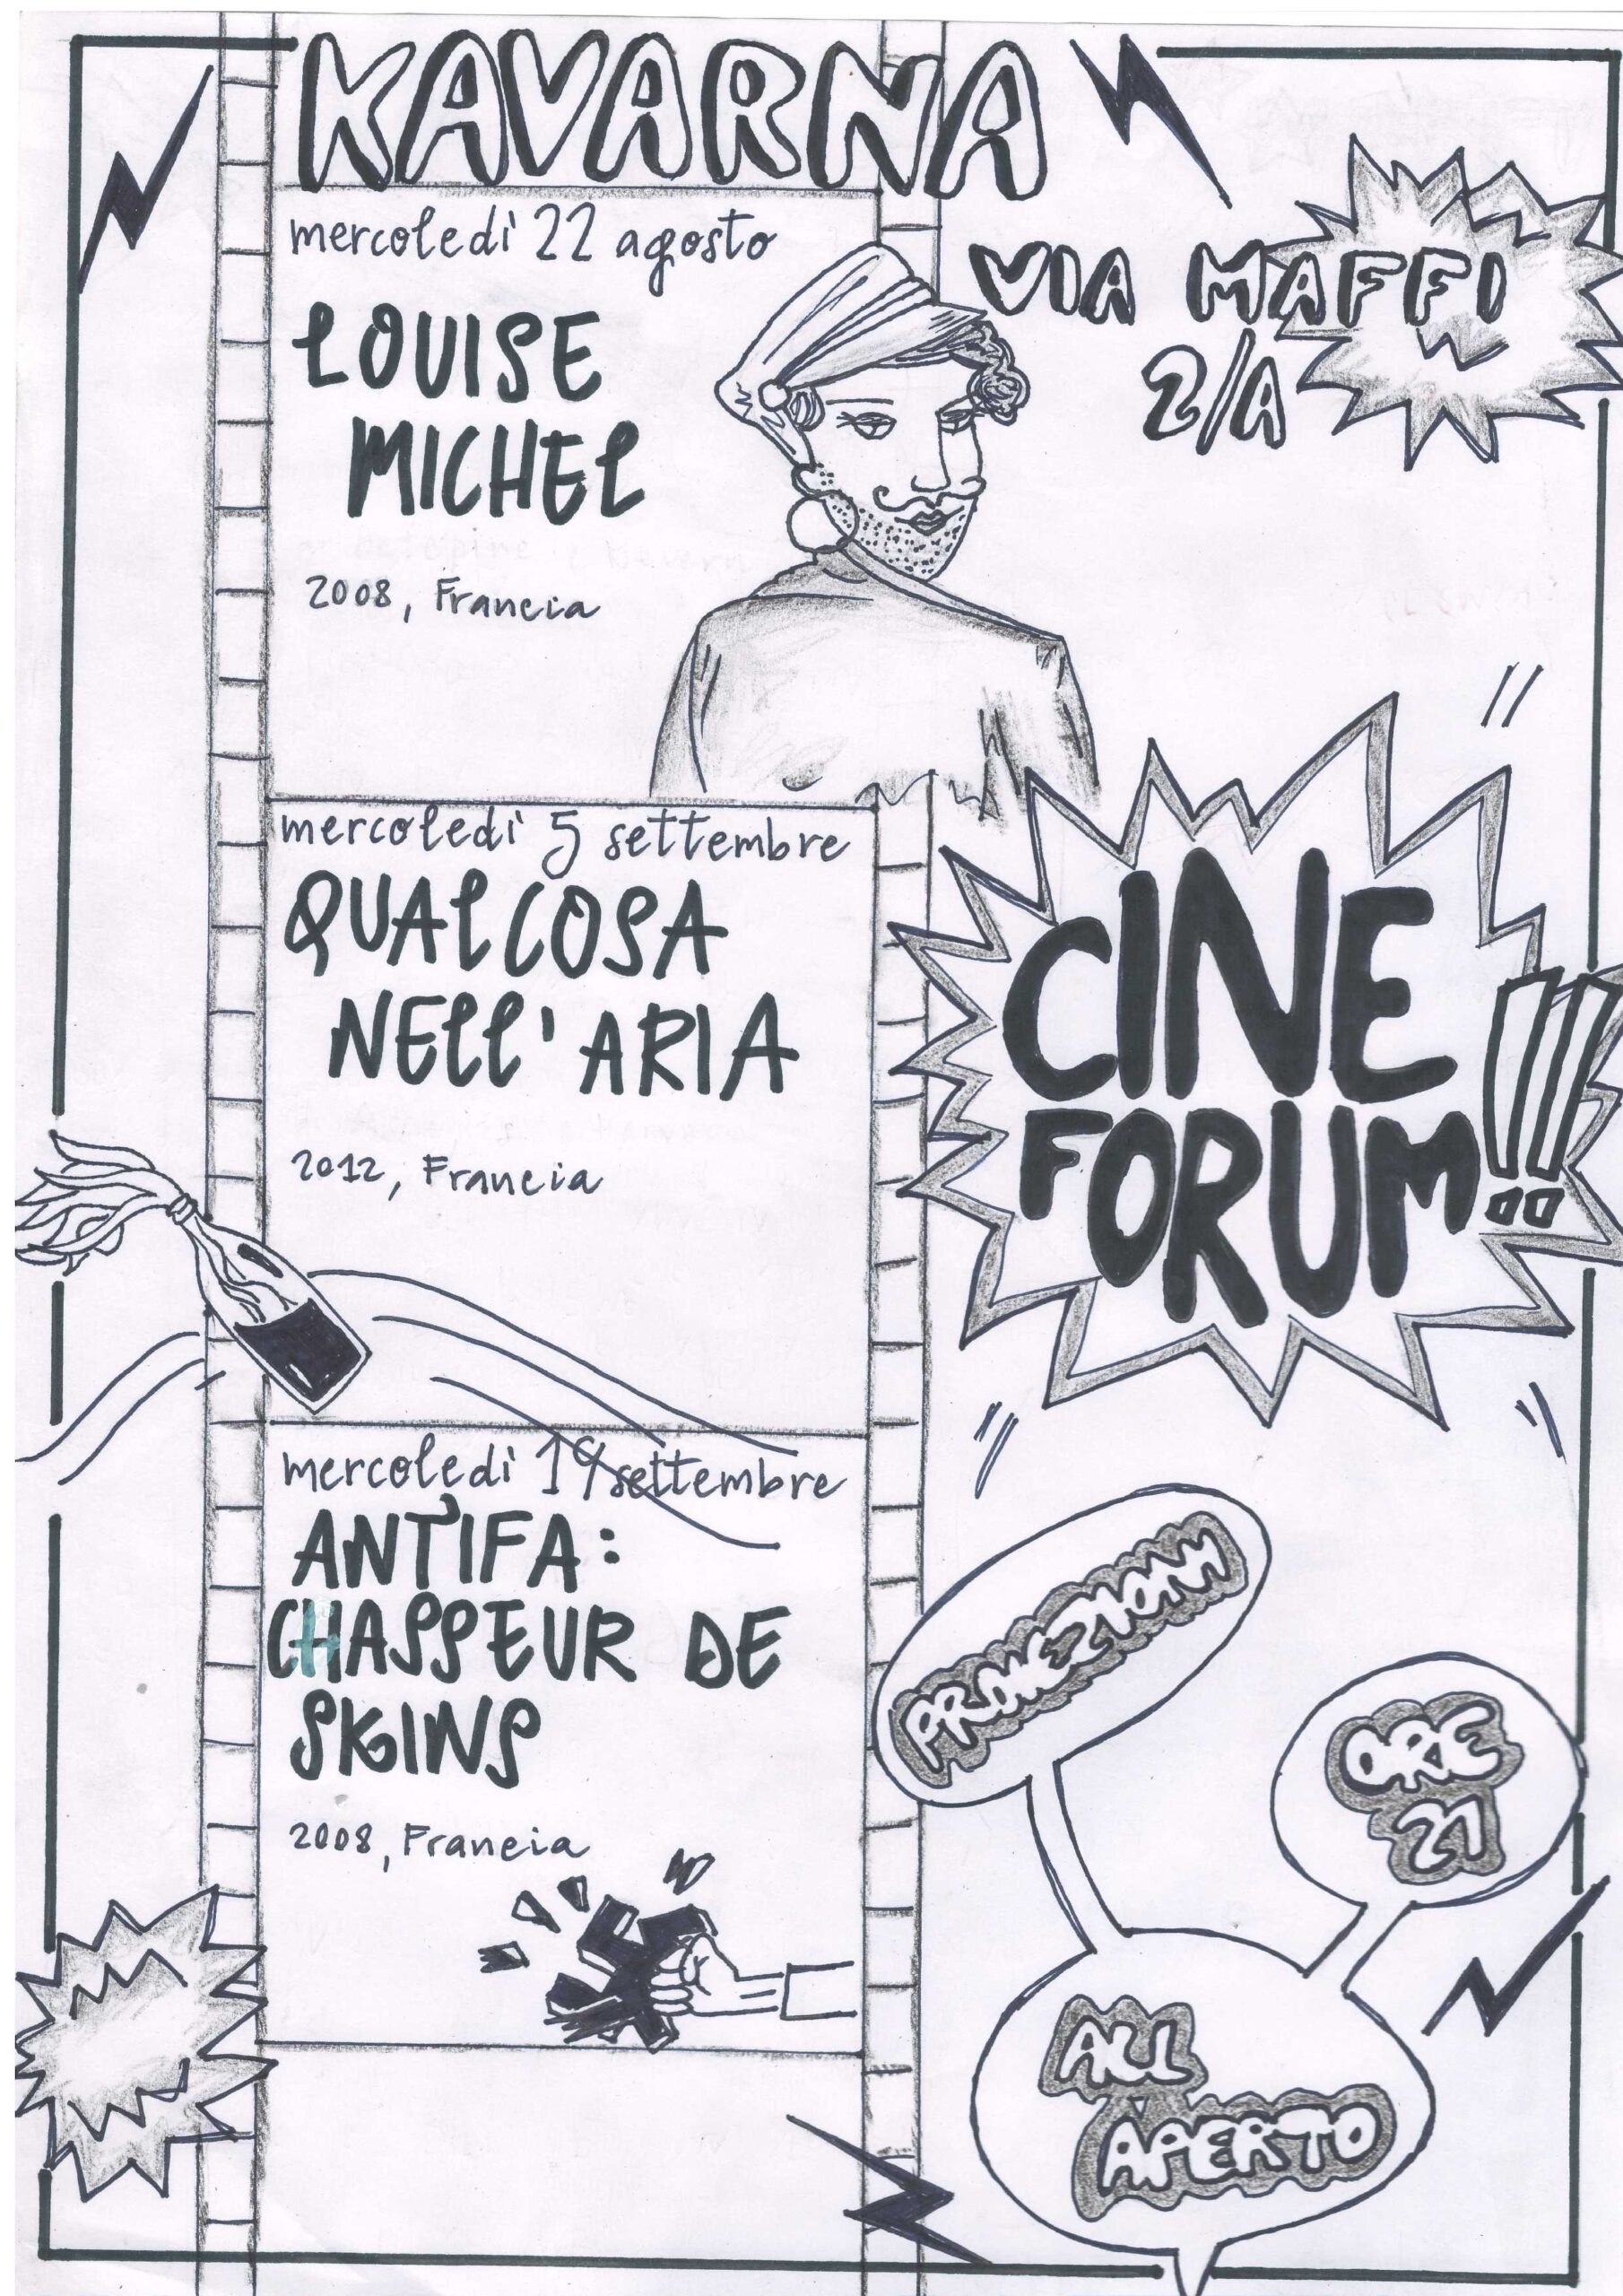 KAVARNA
VIA MAFFI
2/A
mercoledì 22 agosto
LOUISE
MICHEL
2008, Francia
mercoledì 5 settembre
QUALCOSA
NELL'ARIA
2012, Francia
CINE
FORUM!!!
mercoledì 19 settembre
ANTIFA:
CHASSEUR DE
SKINS
2008, Francia
PROIEZIONI
ORE
21
ALL'
APERTO